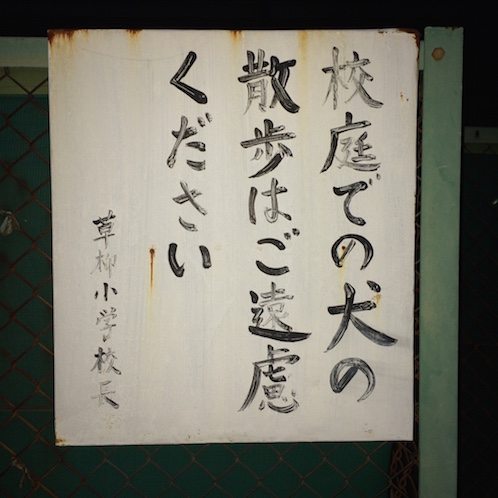 校庭での犬の
散歩はご遠慮
ください
草柳小学校長